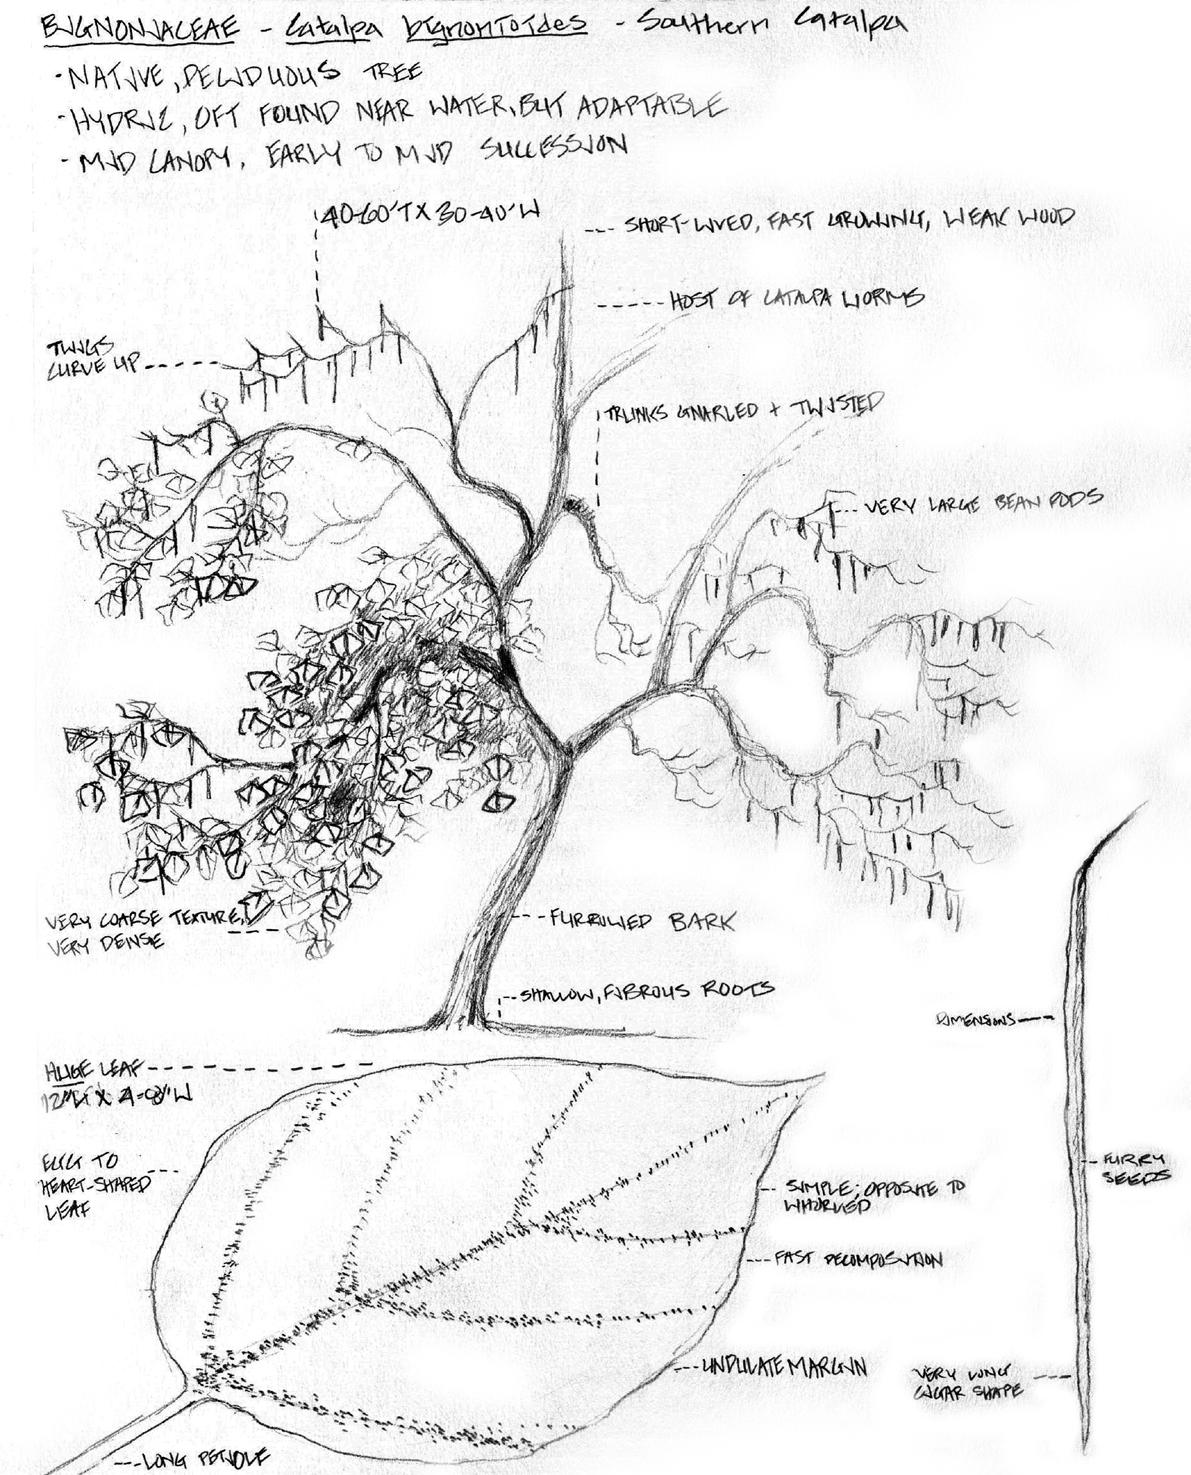 BIGNONIACEAE - Catalpa bignonioides - Southern Catalpa
· NATIVE, DECIDUOUS TREE
· HYDRIC, OFT FOUND NEAR WATER, BUT ADAPTABLE
· MID CANOPY, EARLY TO MID SUCCESSION
40-60'T X 30-40'W
SHORT-LIVED, FAST GROWING, WEAK WOOD
HOST OF CATALPA WORMS
TWIGS
CURVE UP
TRUNKS GNARLED + TWISTED
VERY LARGE BEAN PODS
VERY COARSE TEXTURE,
VERY DENSE
FURROWED BARK
SHALLOW, FIBROUS ROOTS
DIMENSIONS
HUGE LEAF
12"L X 4-8"W
FURRY
SEEDS
TO
HEART-SHAPED
LEAF
SIMPLE; OPPOSITE TO
WHORLED
FAST DECOMPOSITION
UNDULATE MARGIN
VERY LONG
CIGAR SHAPE
LONG PETIOLE